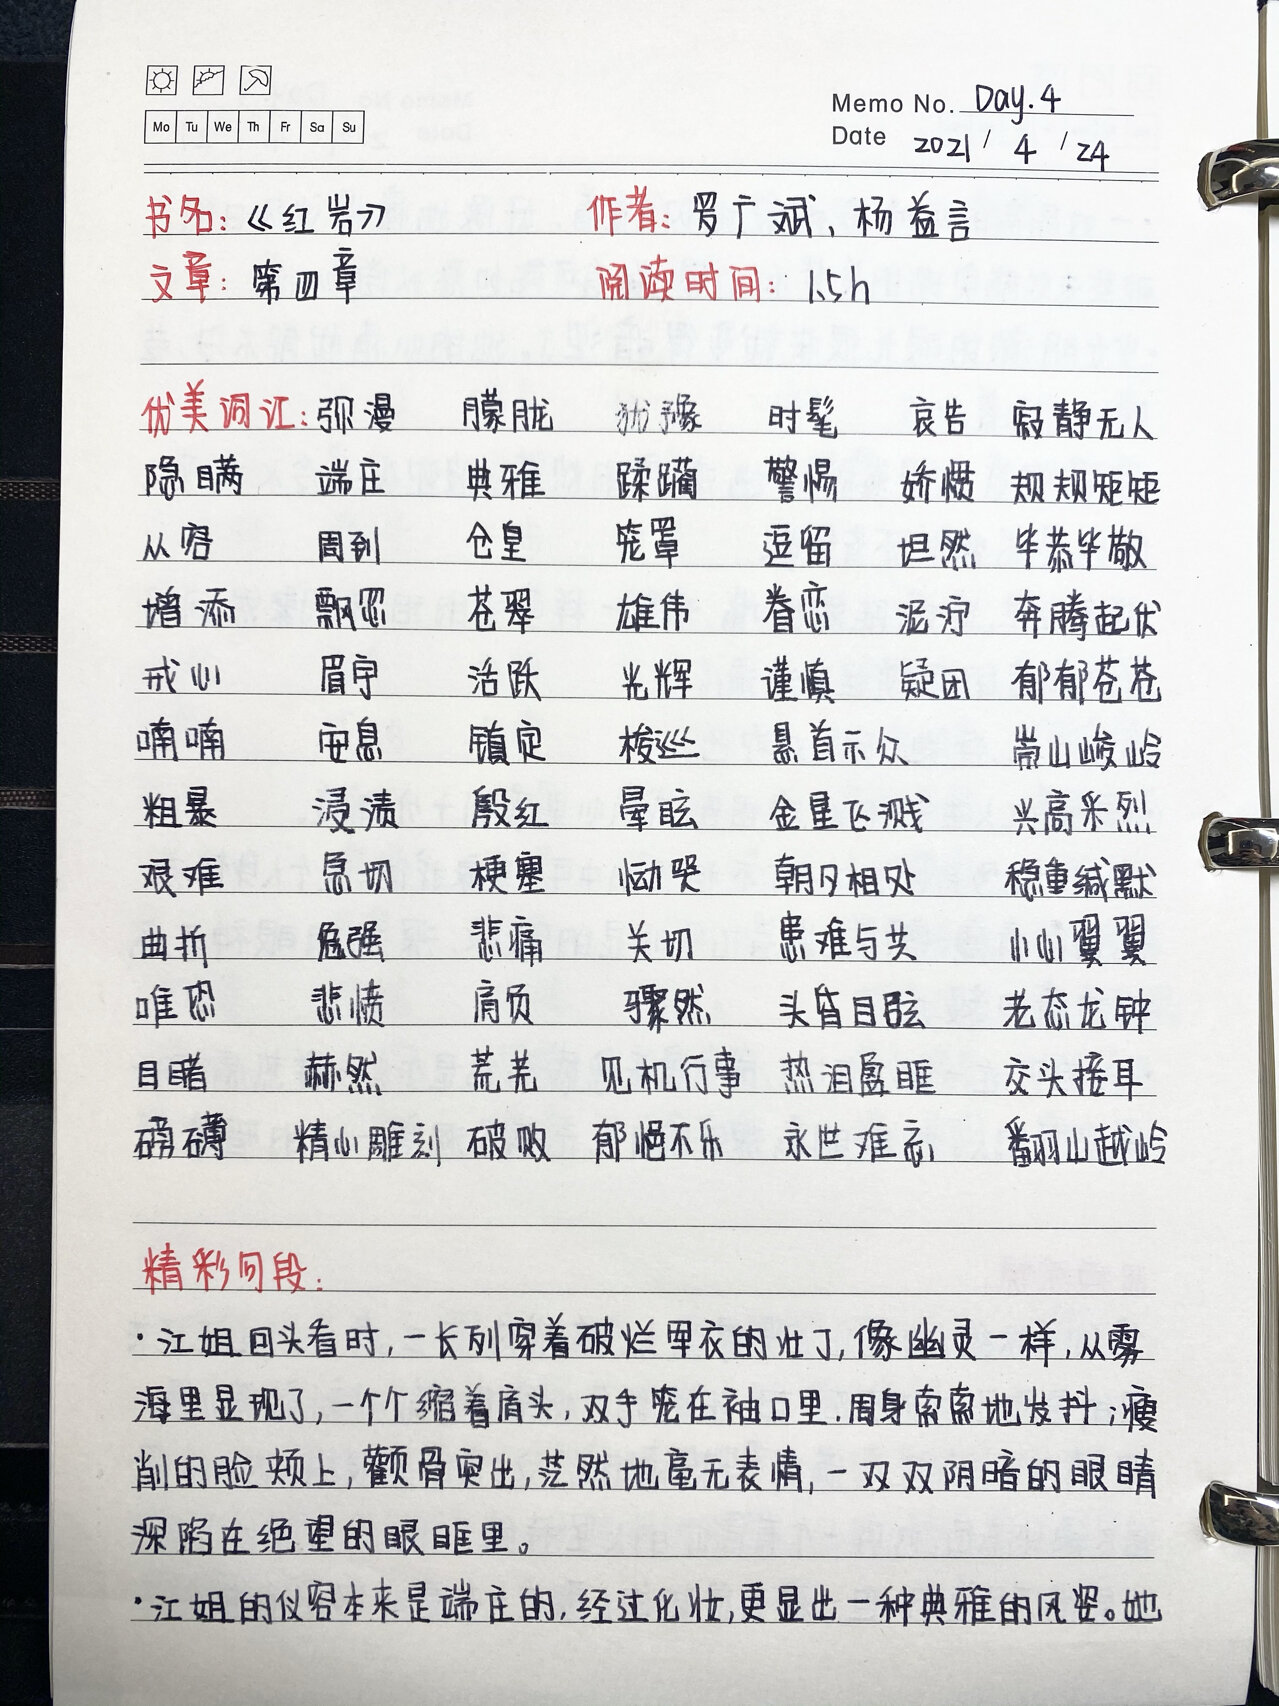 Mo Tu We Th Fr Sa Su
Memo No. Day. 4
Date 2021 / 4 / 24
书名：《红岩》 作者：罗广斌、杨益言
文章：第四章 阅读时间：1.5h
优美词汇：弥漫 朦胧 犹豫 时髦 哀告 寂静无人
隐瞒 端庄 典雅 蹂躏 警惕 娇惯 规规矩矩
从容 周到 仓皇 笼罩 逗留 坦然 毕恭毕敬
增添 飘忽 苍翠 雄伟 眷恋 泥泞 奔腾起伏
戒心 眉宇 活跃 光辉 谨慎 疑团 郁郁苍苍
喃喃 安息 镇定 梭巡 悬首示众 崇山峻岭
粗暴 浸渍 殷红 晕眩 金星飞溅 兴高采烈
艰难 急切 梗塞 恸哭 朝夕相处 稳重缄默
曲折 勉强 悲痛 关切 患难与共 小心翼翼
唯恐 悲愤 肩负 骤然 头昏目眩 老态龙钟
目睹 赫然 荒芜 见机行事 热泪盈眶 交头接耳
磅礴 精心雕刻 破败 郁悒不乐 永世难忘 翻山越岭
精彩句段：
·江姐回头看时，一长列穿着破烂军衣的壮丁，像幽灵一样，从雾
海里显现了，一个个缩着肩头，双手笼在袖口里，周身索索地发抖；瘦
削的脸颊上，颧骨突出，茫然地毫无表情，一双双阴暗的眼睛
深陷在绝望的眼眶里。
·江姐的仪容本来是端庄的，经过化妆，更显出一种典雅的风姿。她